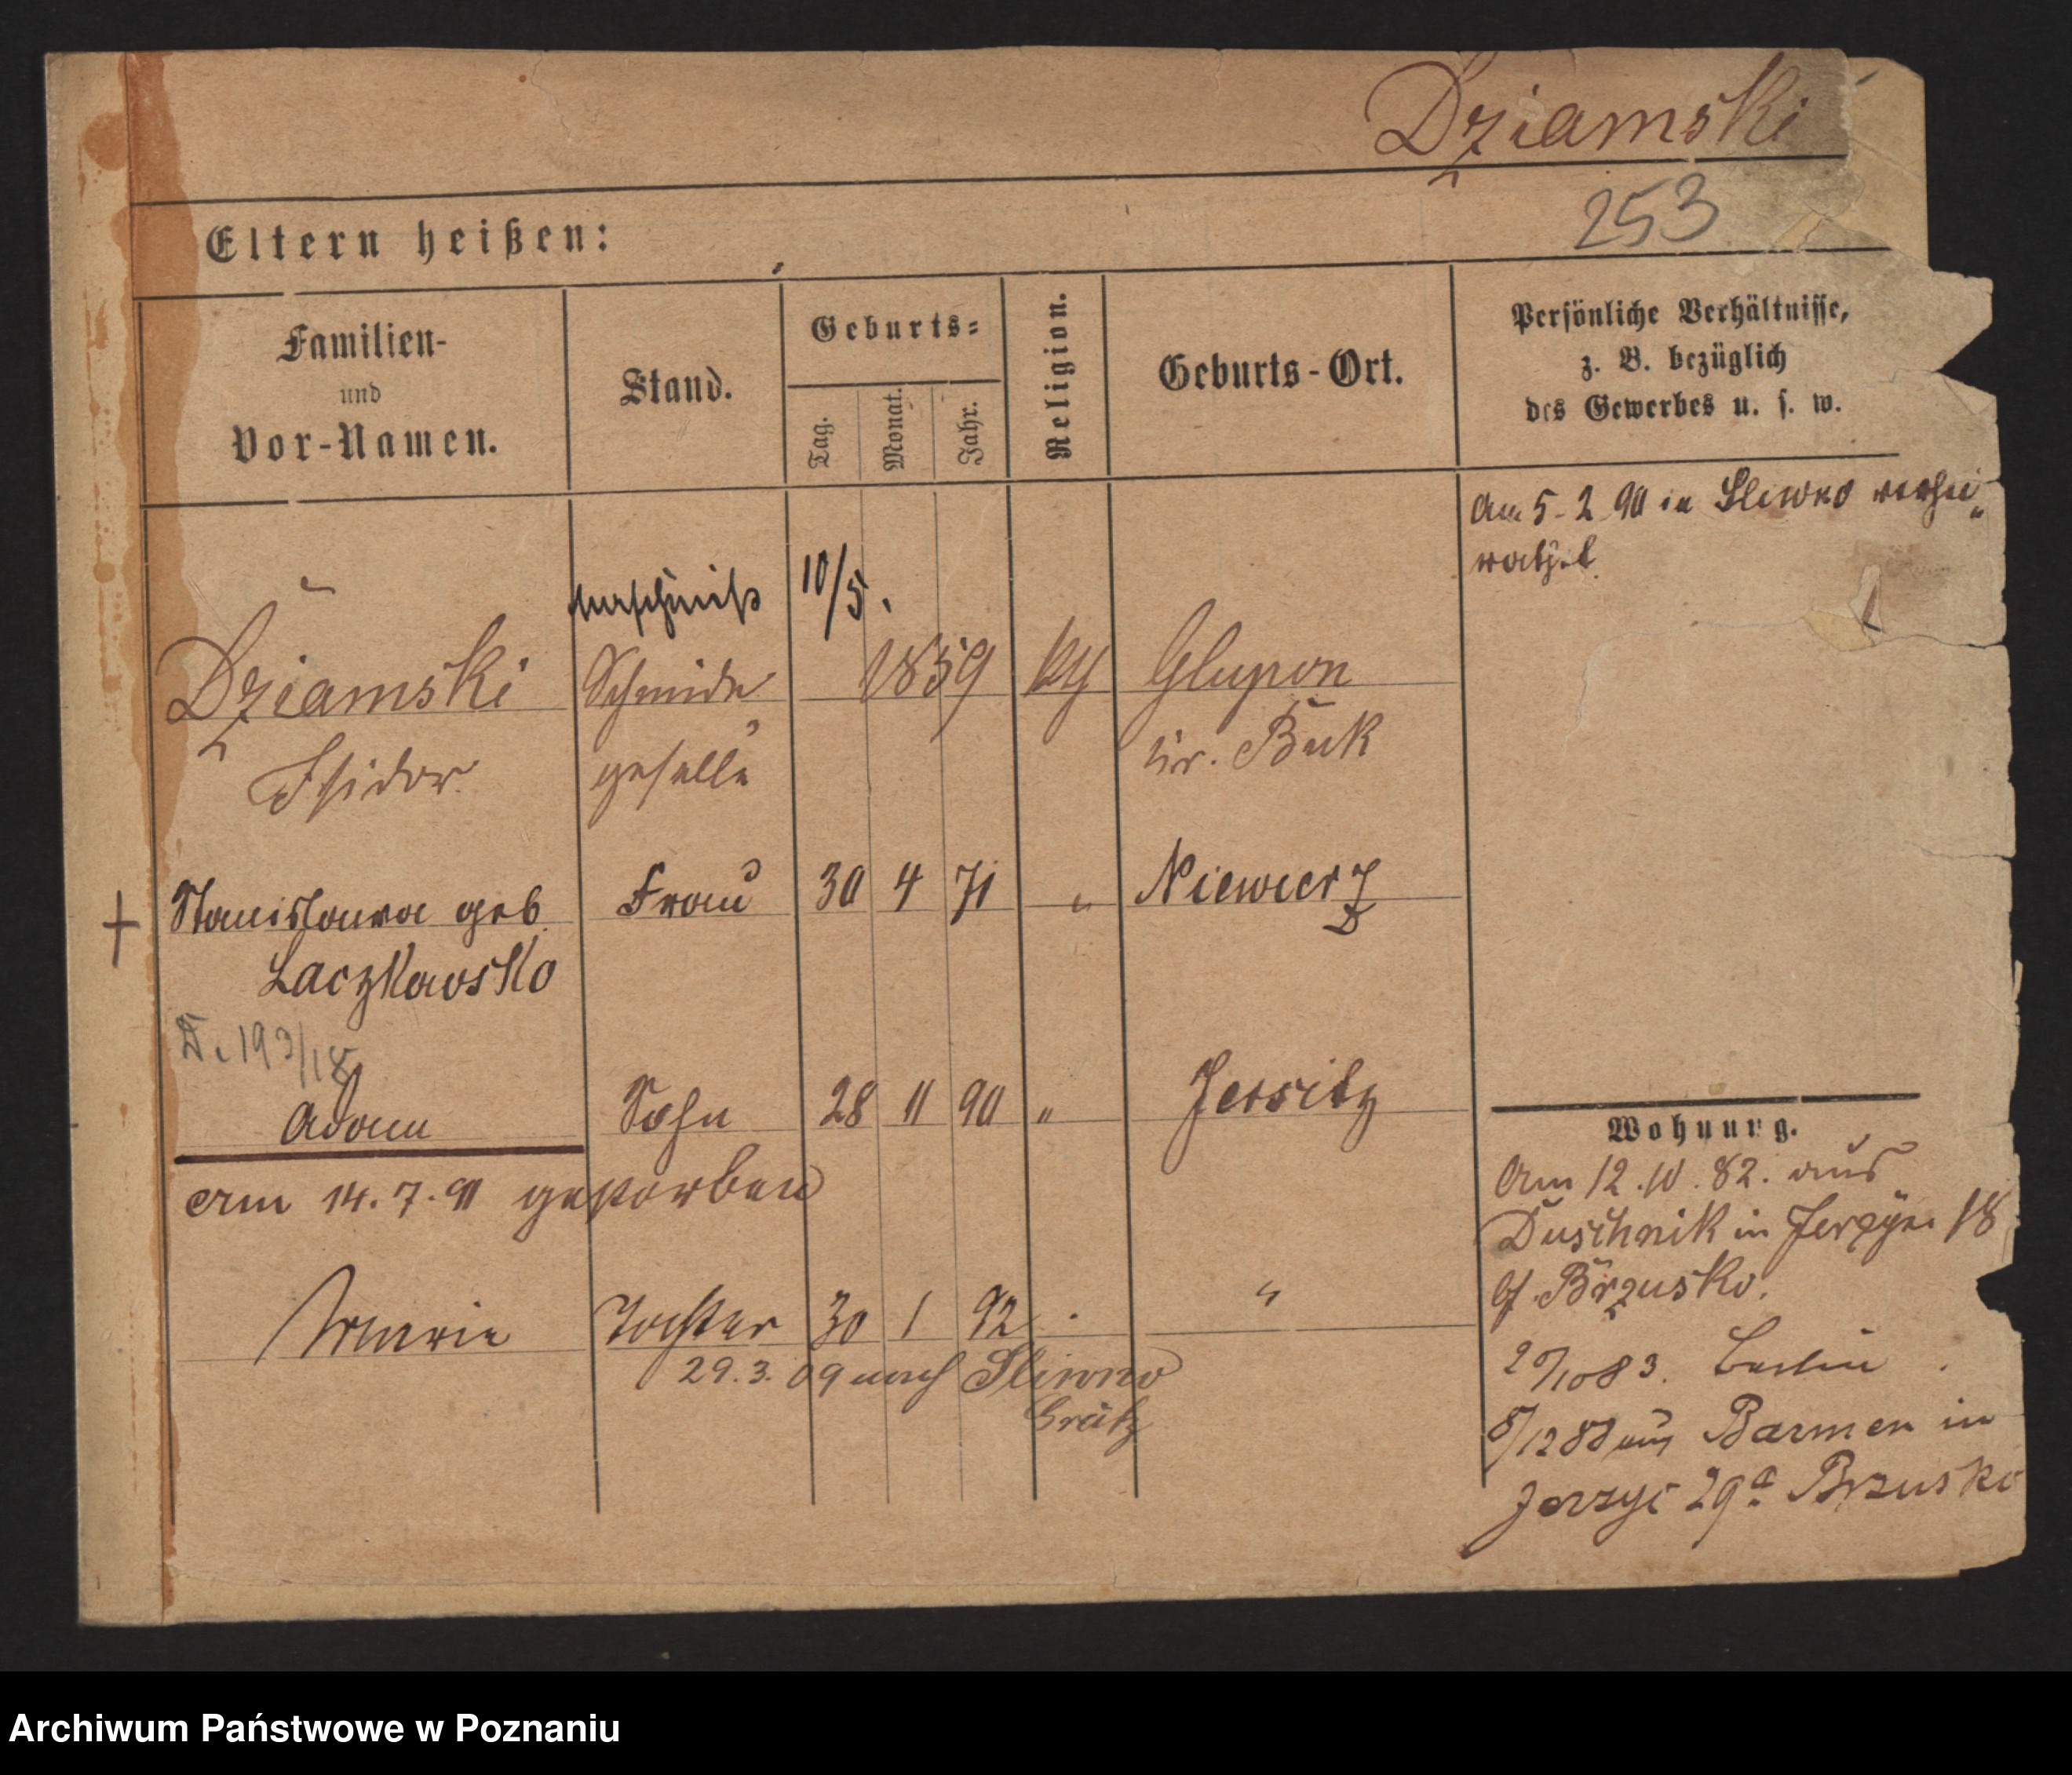 Dziamski
253
Eltern heißen:
Familien-
und
Vor-Namen.
Stand.
Geburts=
Tag.
Monat.
Jahr.
Religion.
Geburts-Ort.
Persönliche Verhältnisse,
z. B. bezüglich
des Gewerbes u. s. w.
Am 5-2 90 in Sliwno verhei„
rathet.
10/5.
Dziamski Schmide 1859 kth Glupon
Isidor geselle kr. Buk
† Stanislawa geb. Frau 30 4 71 „ Niewierz
Laczkowska
193/18
Adam Sohn 28 11 90 „ Jersitz
am 14.7.91 gestorben
Marie Tochter 30 1 92 . „
29.3.09 nach Sliwno
Grätz
Wohnung.
Am 12.10.82. aus
Duschnik in Jerzyce 18
bf. Brzusko.
2⁰/₁₀83. Berlin.
8/12 88 aus Barmen in
Jerzyc 29a Brzusko
Archiwum Państwowe w Poznaniu